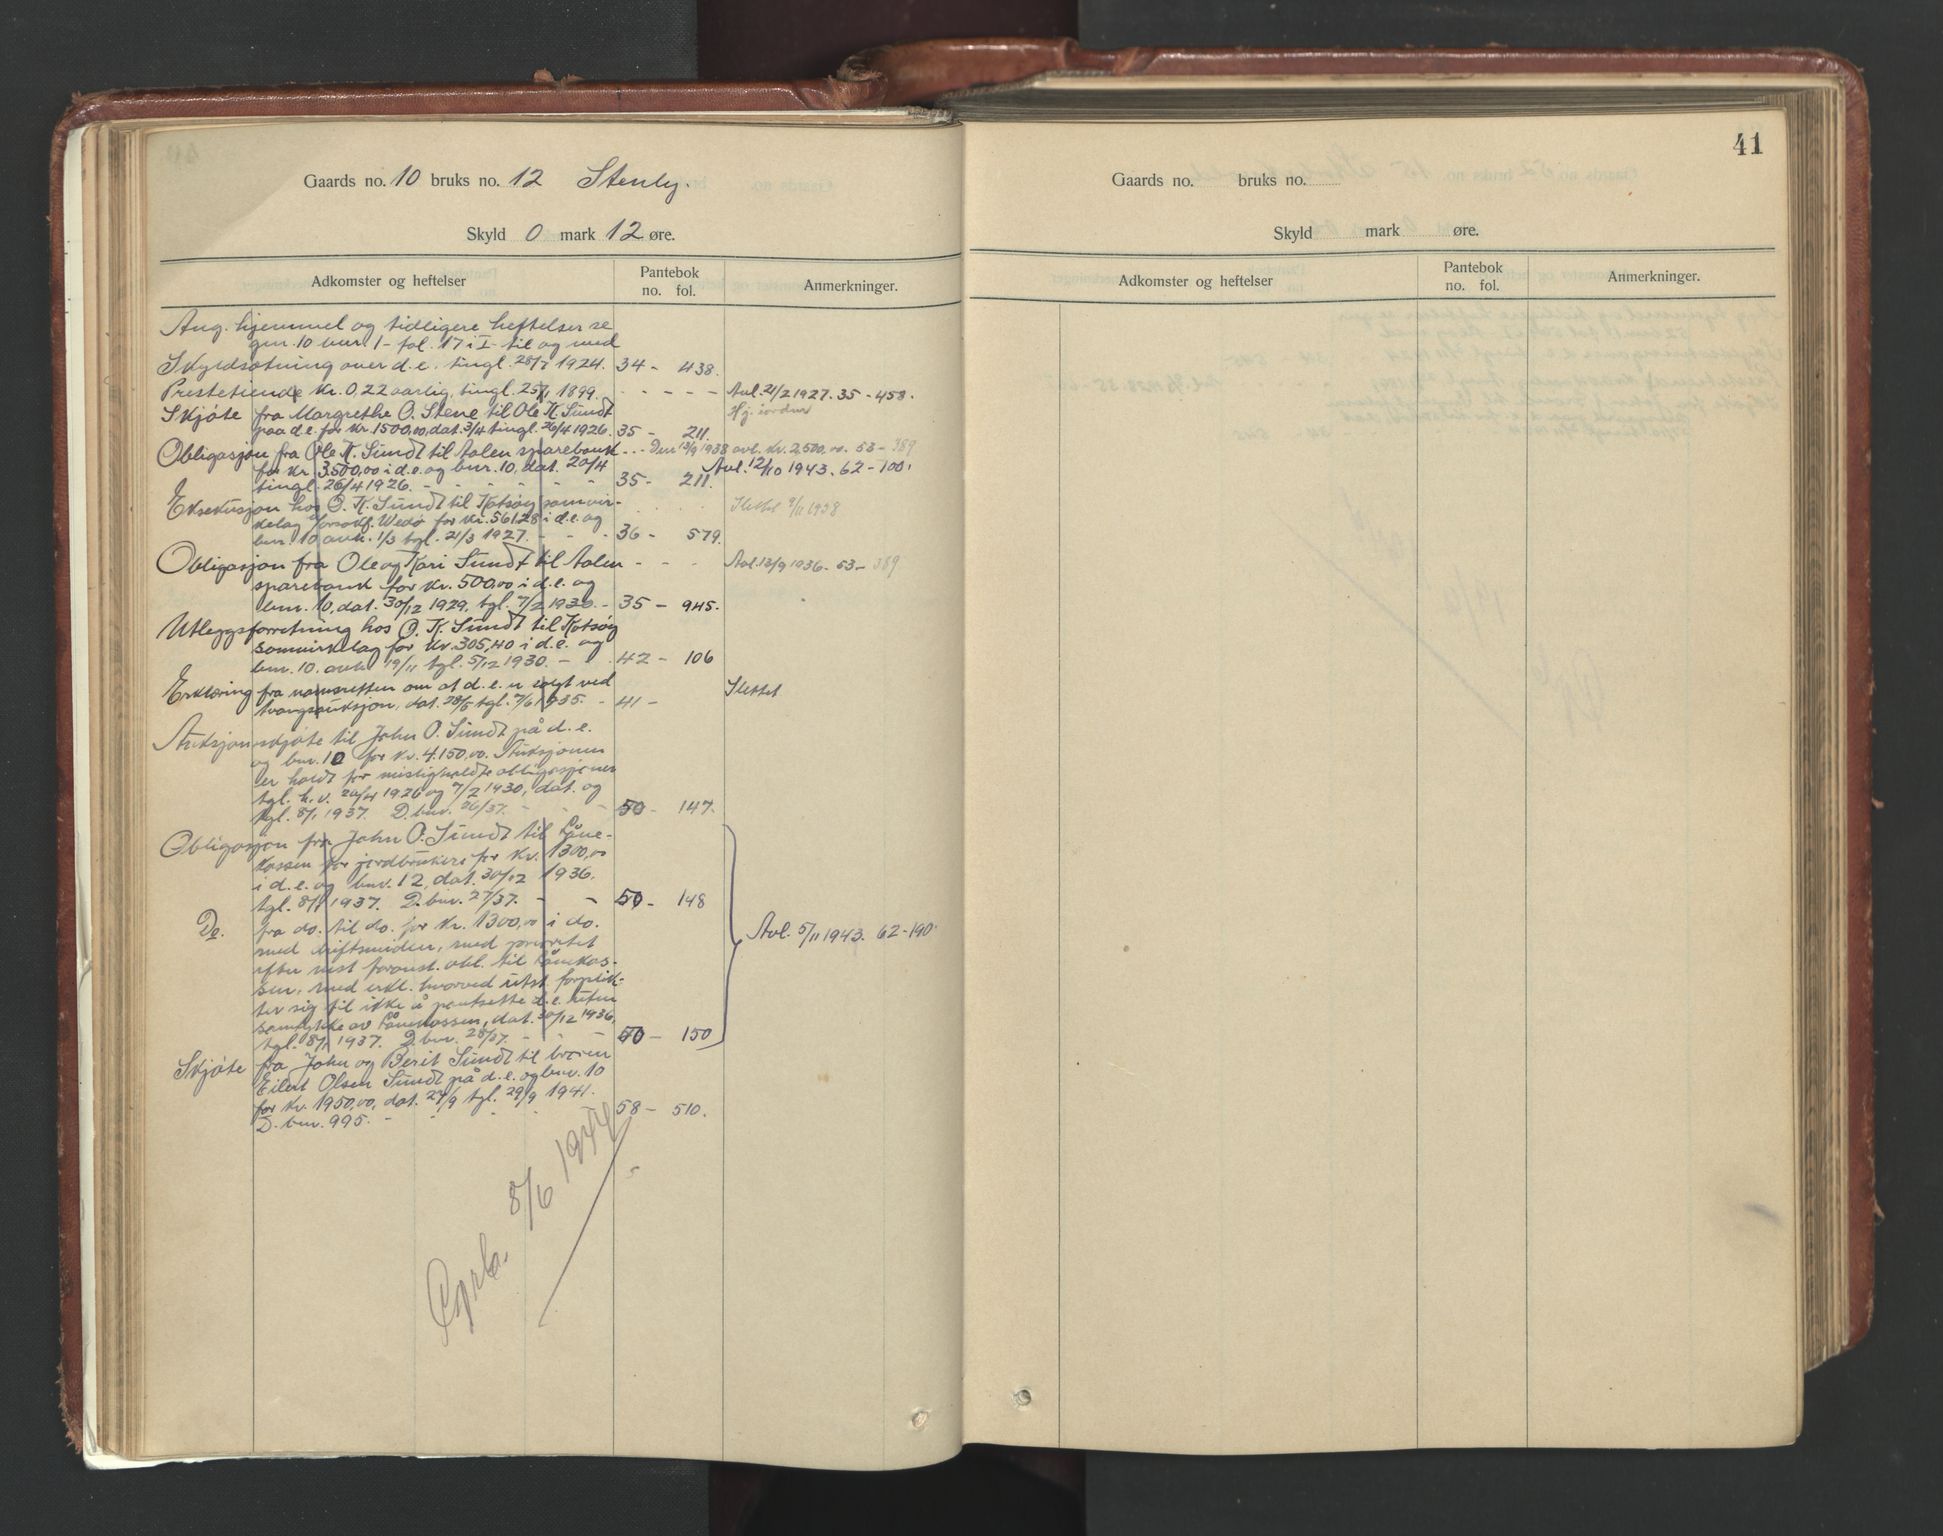 Gaards no. 10 bruks no. 12 Stenby.
Skyld 0 mark 12 øre.
Adkomster og heftelser
Pantebok
no. fol.
Anmerkninger.
Ang. hjemmel og tidligere heftelser se
gnr. 10 bnr. 1 - fol. 17 i I - til og med
Skyldsetning over d.e. tingl. 28/7 1924. 34 - 438.
Prestetiende kr. 0,22 aarlig, tingl. 1899. - - - - - Avl. 21/2 1927. 35 - 458.
Skjøte fra Margrethe O. Stene til Ole K. Sundt Hj. i orden
paa d.e. for kr. 1500,00, dat. 3/4 tingl. 26/4 1926. 35 - 211.
Obligasjon fra Ole K. Sundt til Aalen sparebank - - - 13/9 1938 avl. kr. 2.500,00. 53 - 389
for kr. 3500,00 i d.e. og bnr. 10, dat. 20/4 Avl. 12/10 1943. 62 - 100.
tingl. 26/4 1926. - - - - - 35 - 211.
Eksekusjon hos O. K. Sundt til Kotsøy samvir-
kelag v/orsakf. Wedø for kr. 561,28 i d.e. og Slettet 9/11 1938
bnr. 10 avh. 1/3 tgl. 21/3 1927. - - - 36 - 579.
Obligasjon fra Ole og Kari Sundt til Aalen - - - Avl. 13/9 1936. 53 - 389
sparebank for kr. 500,00 i d.e. og
bnr. 10, dat. 30/12 1929, tgl. 7/2 1930. - 35 - 945.
Utleggsforretning hos O. K. Sundt til Kotsøy
samvirkelag for kr. 305,40 i d.e. og
bnr. 10. avh. 19/11 tgl. 5/12 1930. - 42 - 106
Erklæring fra namsretten om at d.e. er solgt ved Slettet
tvangsauksjon, dat. 28/5 tgl. 7/6 1935. - 41 -
Auksjonsskjøte til John O. Sundt på d.e.
og bnr. 10 for kr. 4.150,00. Auksjonen
er holdt for misligholdte obligasjoner
tgl. h.v. 26/4 1926 og 7/2 1930, dat. og
tgl. 8/1 1937. D.bnr. 26/37. - - - 50 - 147.
Obligasjon fra John O. Sundt til Låne-
kassen for jordbrukere for kr. 1300,00
i d.e. og bnr. 12, dat. 30/12 1936.
tgl. 8/1 1937. D.bnr. 27/37. - - 50 - 148
Do. fra do. til do. for kr. 1300,00 i do.
med driftsmidler, med prioritet Avl. 5/11 1943. 62 - 190.
efter nest foranst. obl. til Lånekas-
sen, med erkl. hvorved utst. forplik-
ter sig til ikke å pantsette d.e. uten
samtykke av Lånekassen, dat. 30/12 1936.
tgl. 8/1 1937. D.bnr. 28/37. - - - 50 - 150
Skjøte fra John og Berit Sundt til broren
Eilert Olsen Sundt på d.e. og bnr. 10
for kr. 1950,00, dat. 27/9 tgl. 29/9 1941.
D.bnr. 995. - - - - 58 - 510.
8/6 1944
41
Gaards no. bruks no.
Skyld mark øre.
Adkomster og heftelser
Pantebok
no. fol.
Anmerkninger.